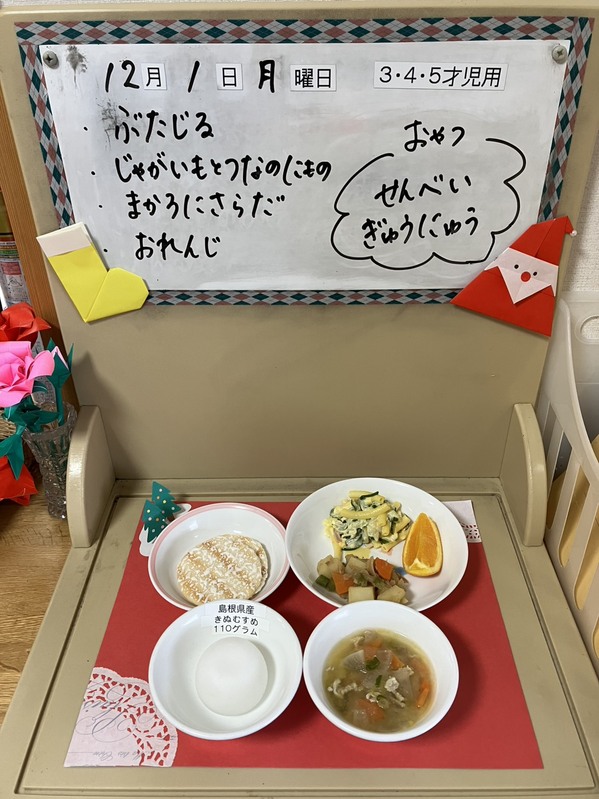 12月1日月曜日 3・4・5才児用
・ぶたじる
・じゃがいもとつなのにもの
・まかろにさらだ
・おれんじ
おやつ
せんべい
ぎゅうにゅう
島根県産
きぬむすめ
110グラム